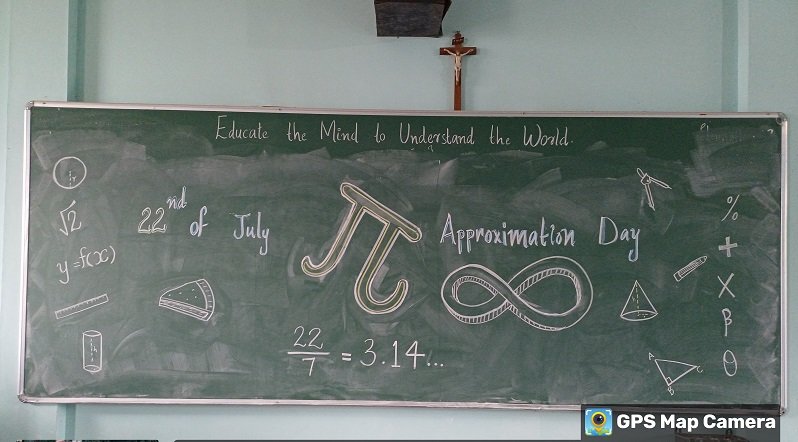 Educate the Mind to Understand the World.
22nd of July π Approximation Day
√2
y=f(x)
22/7 = 3.14...
%
+
X
β
θ
A
B
C
GPS Map Camera